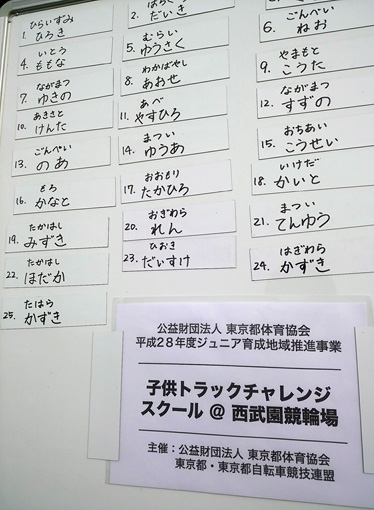 ひらいずみ
1. ひろき
2. だいき
ごんぺい
6. ねお
いとう
4. ももな
むらい
5. ゆうさく
やまもと
9. こうた
ながまつ
7. ゆきの
わかばやし
8. あおせ
ながまつ
12. すずの
あきさと
10. けんた
あべ
11. やすひろ
おちあい
15. こうせい
ごんぺい
13. のあ
まつい
14. ゆうあ
いけだ
18. かいと
もろ
16. かなと
おおもり
17. たかひろ
まつい
21. てんゆう
たかはし
19. みずき
おぎわら
20. れん
はぎわら
24. かずき
たかはし
22. ほだか
ひおき
23. だいすけ
たはら
25. かずき
公益財団法人 東京都体育協会
平成28年度ジュニア育成地域推進事業
子供トラックチャレンジ
スクール @ 西武園競輪場
主催：公益財団法人 東京都体育協会
東京都・東京都自転車競技連盟